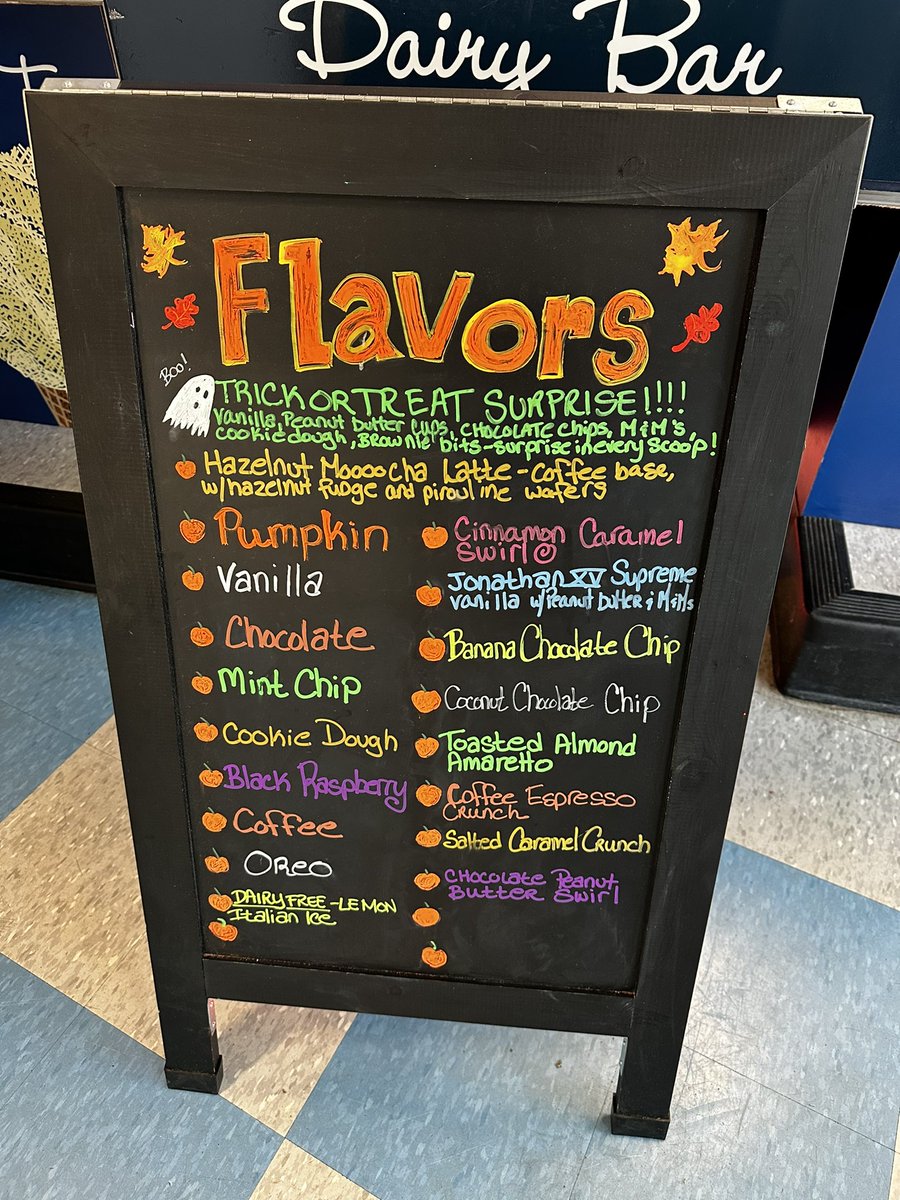 Dairy Bar
Flavors
Boo!
TRICK OR TREAT SURPRISE!!!!
Vanilla, Peanut butter cups, CHOCOLATE chips, M&M's,
cookie dough, Brownie bits - surprise in every scoop!
Hazelnut Moooocha Latte - coffee base,
w/hazelnut fudge and pirouline wafers
Pumpkin
Vanilla
Chocolate
Mint Chip
Cookie Dough
Black Raspberry
Coffee
Oreo
DAIRY FREE - LEMON
Italian Ice
Cinnamon Caramel
Swirl
Jonathan XV Supreme
vanilla w/Peanut butter & M&Ms
Banana Chocolate Chip
Coconut Chocolate Chip
Toasted Almond
Amaretto
Coffee Espresso
Crunch
Salted Caramel Crunch
CHOCOLATE Peanut
Butter Swirl